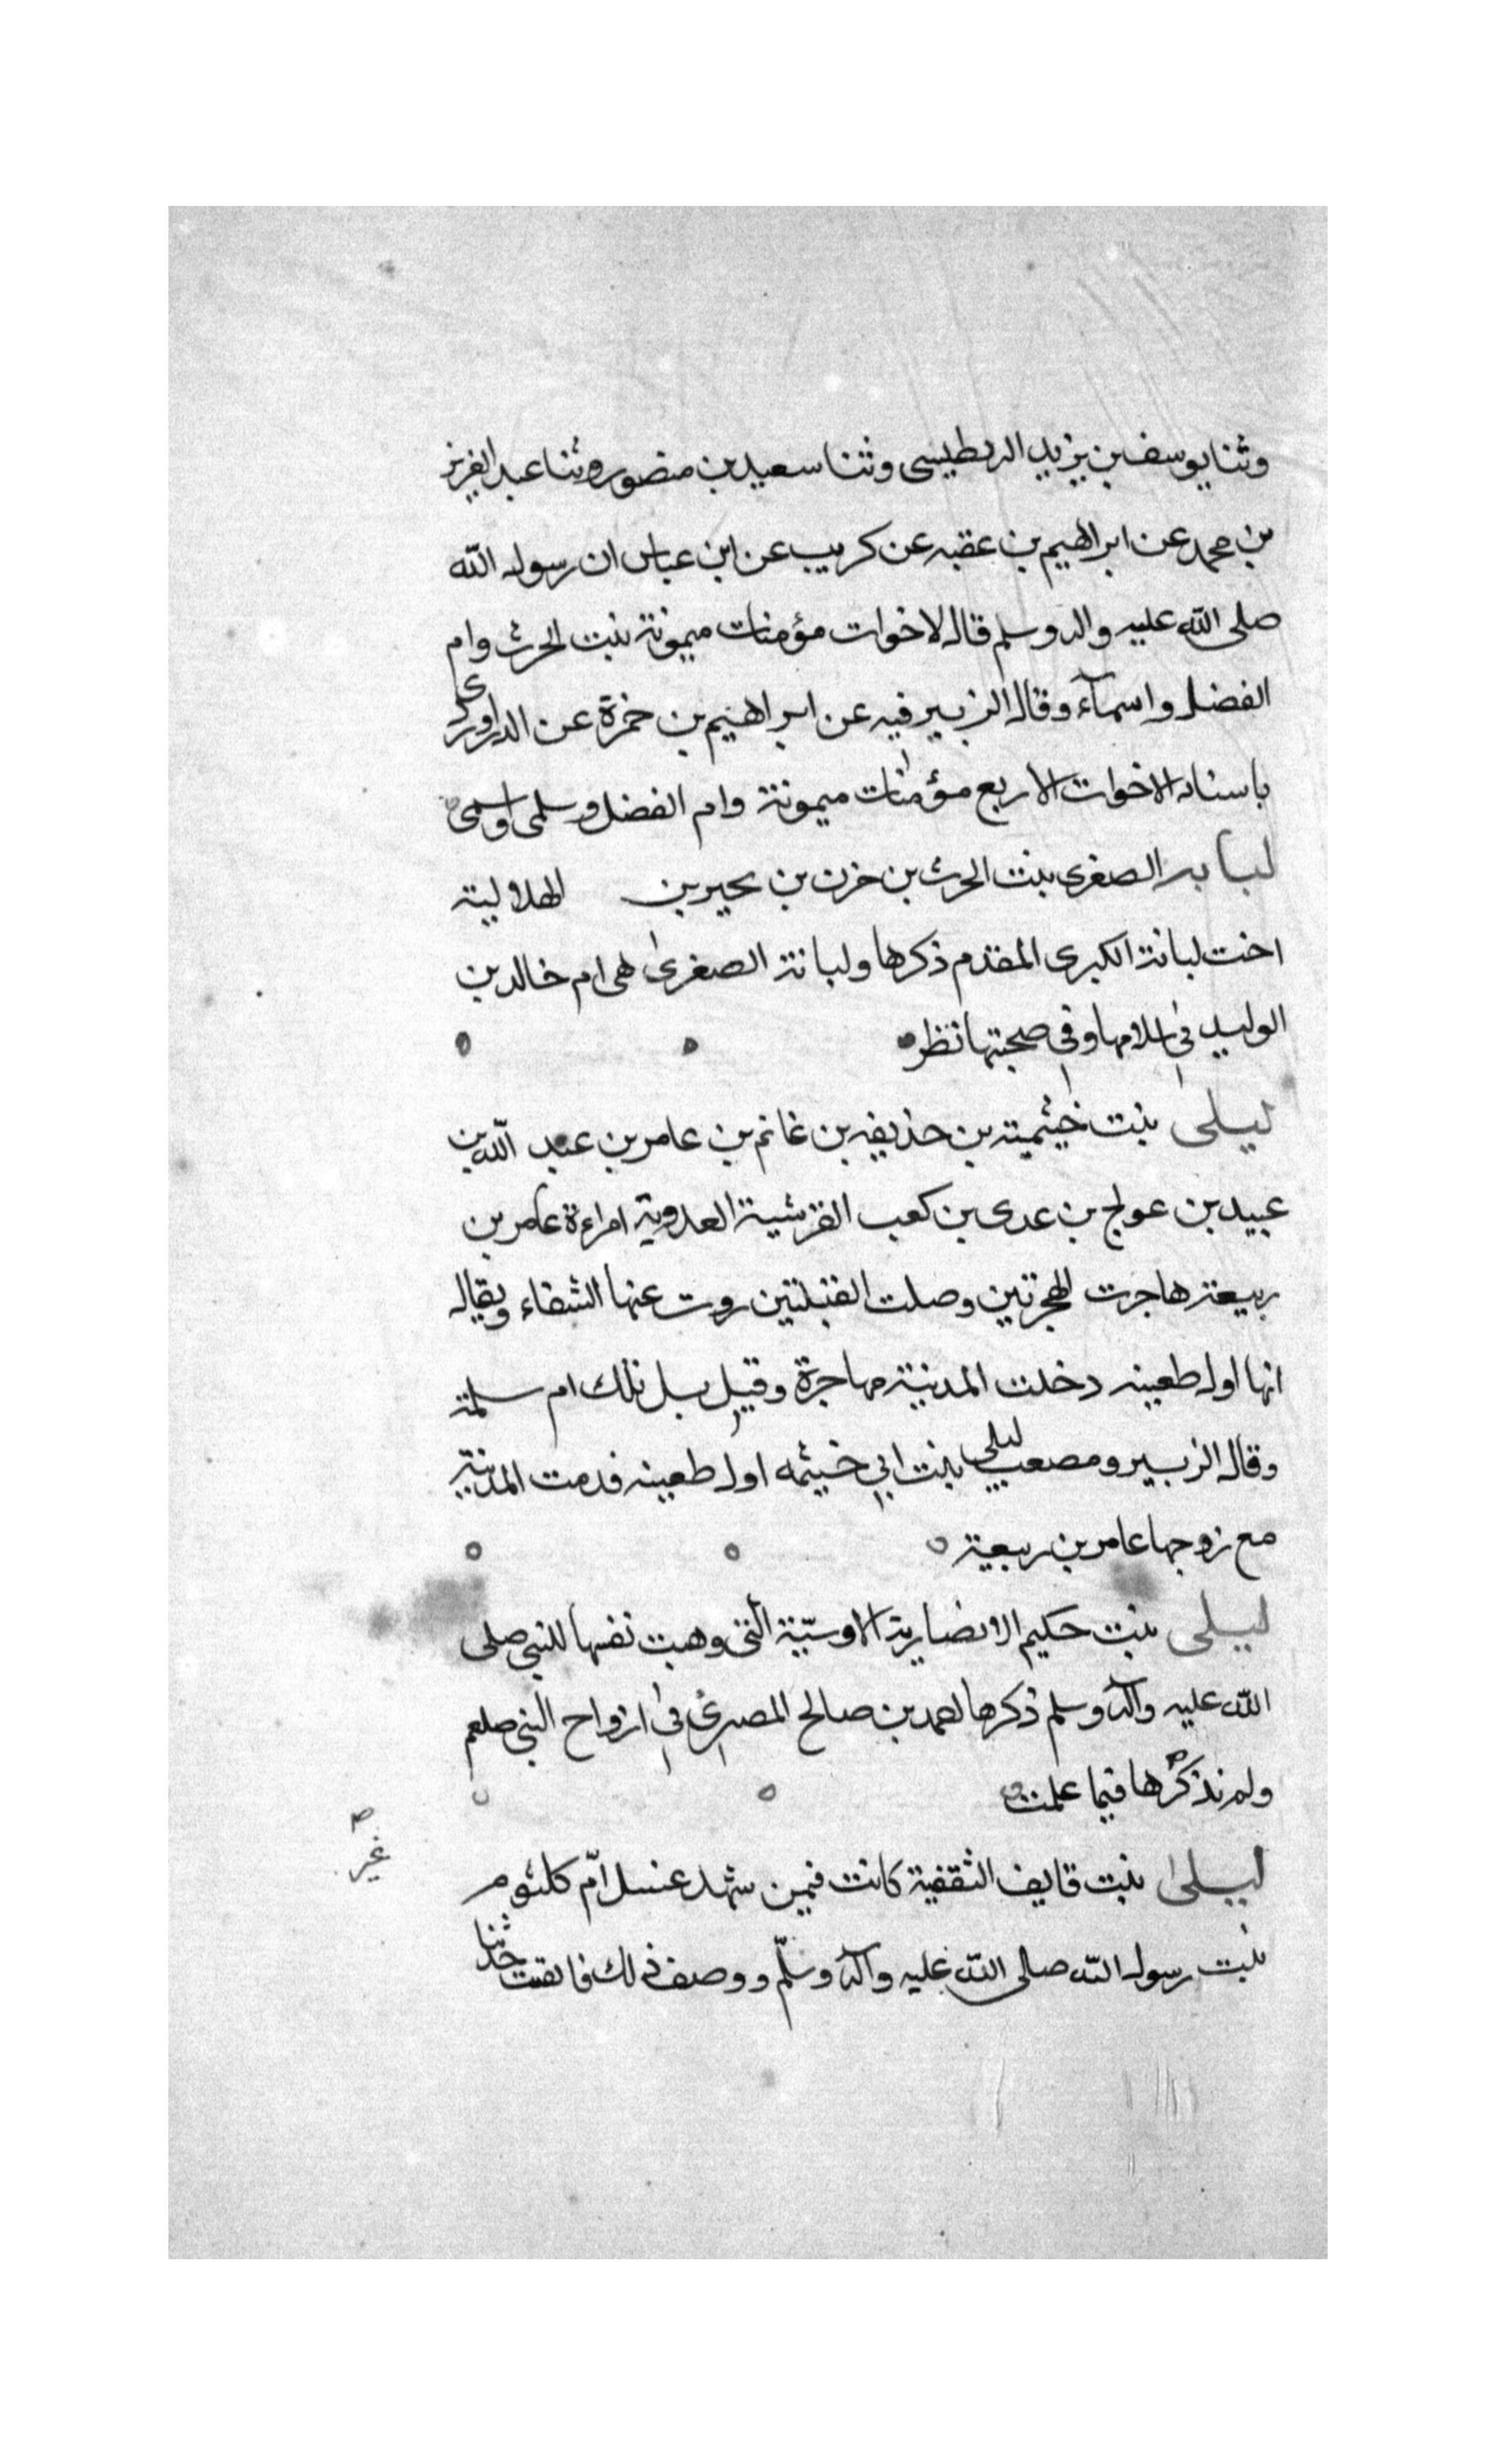 وثنا يوسف بن يزيد الربطيسى وثنا سعيد بن منصور وثنا عبد العزيز
بن محمد عن ابراهيم بن عقبه عن كريب عن ابن عباس ان رسول الله
صلى الله عليه واله وسلم قال الاخوات مؤمنات ميمونة بنت الحرث وام
الفضل واسمآء وقال الزبير فيه عن ابراهيم بن حمزة عن الدراوردى
باسناده الاخوات الاربع مؤمنات ميمونة وام الفضل وسلمى واسمى
لبابه الصغرى بنت الحرث بن حزن بن بحير بن الهلالية
اخت لبانة الكبرى المقدم ذكرها ولبانة الصغرى هى ام خالد بن
الوليد فى اسلامها وفى صحبتها نظر
ليلى بنت خيثمية بن حذيفه بن غانم بن عامر بن عبد الله بن
عبيد بن عولج بن عدى بن كعب القرشية العدوية امراءة عامر بن
ربيعة هاجرت الهجرتين وصلت القبلتين روت عنها الشفاء ويقال
انها اول طعينه دخلت المدينة مهاجرة وقيل بل تلك ام سلمة
وقال الزبير ومصعب ليلى بنت ابى خيثمه اول طعينه قدمت المدينة
مع زوجها عامر بن ربيعة
ليلى بنت حكيم الانصارية الاوسيّة الّتى وهبت نفسها للنبى صلى
الله عليه وآله وسلم ذكرها احمد بن صالح المصرى فى ازواج النبى صلعم
ولم نذكرها فيما علمت
غير
ليلى بنت قايف الثقفية كانت فيمن شهد غسل امّ كلثوم
بنت رسول الله صلى الله عليه وآله وسلّم ووصف ذلك فاتقنت حدثنا